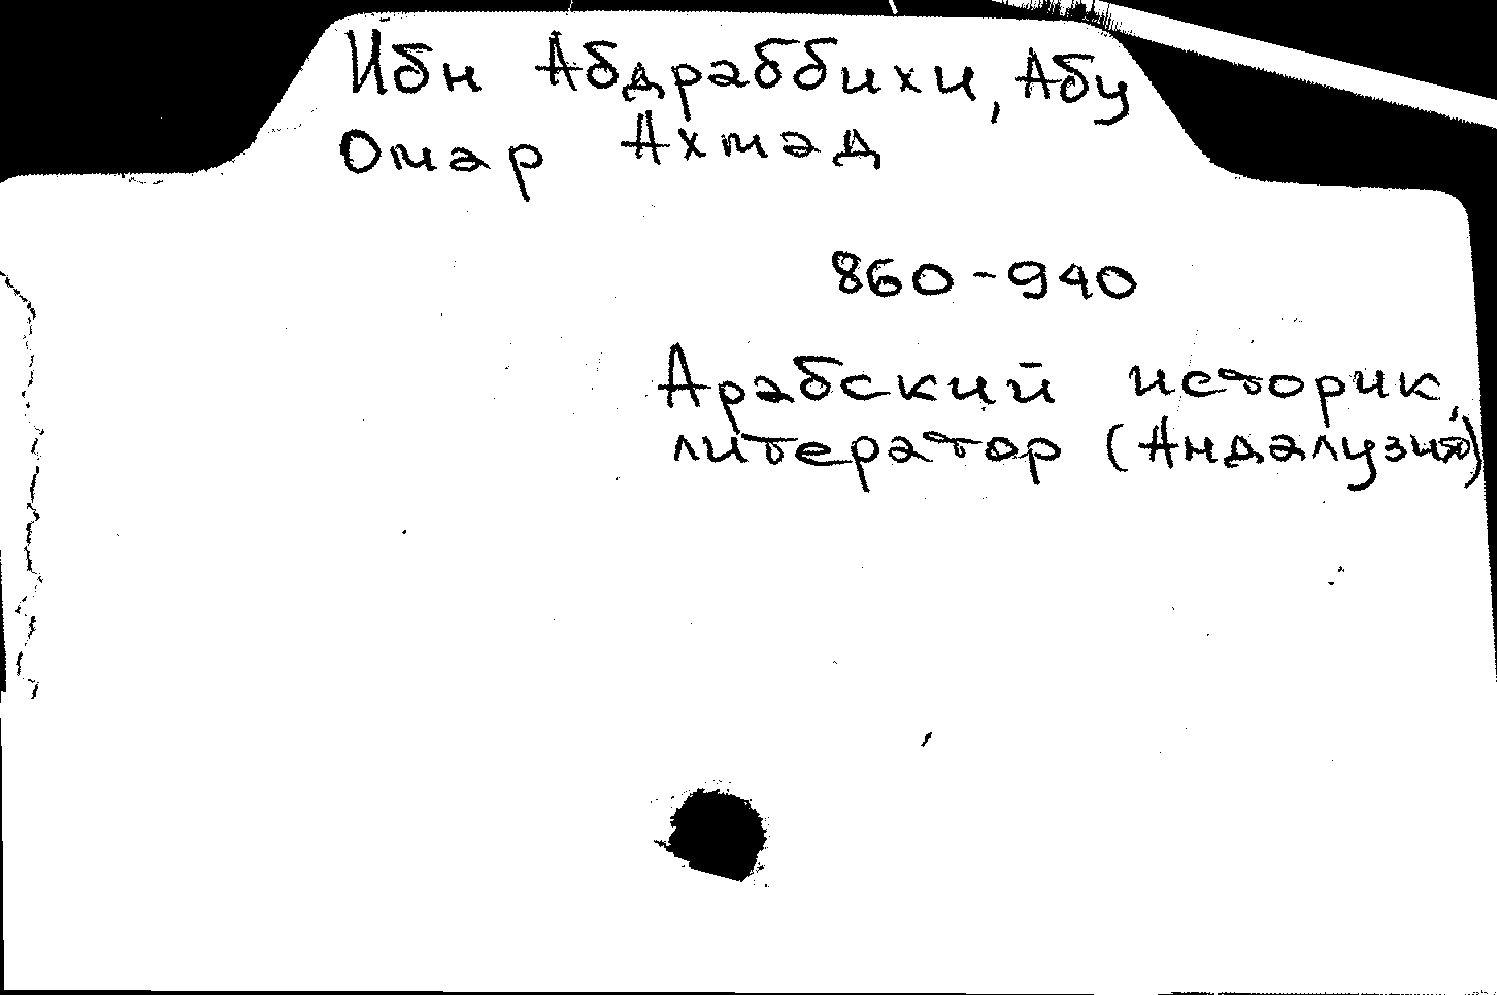 Ибн Абдраббихи, Абу
Омар Ахмад
860-940
Арабский историк,
литератор (Андалузия)